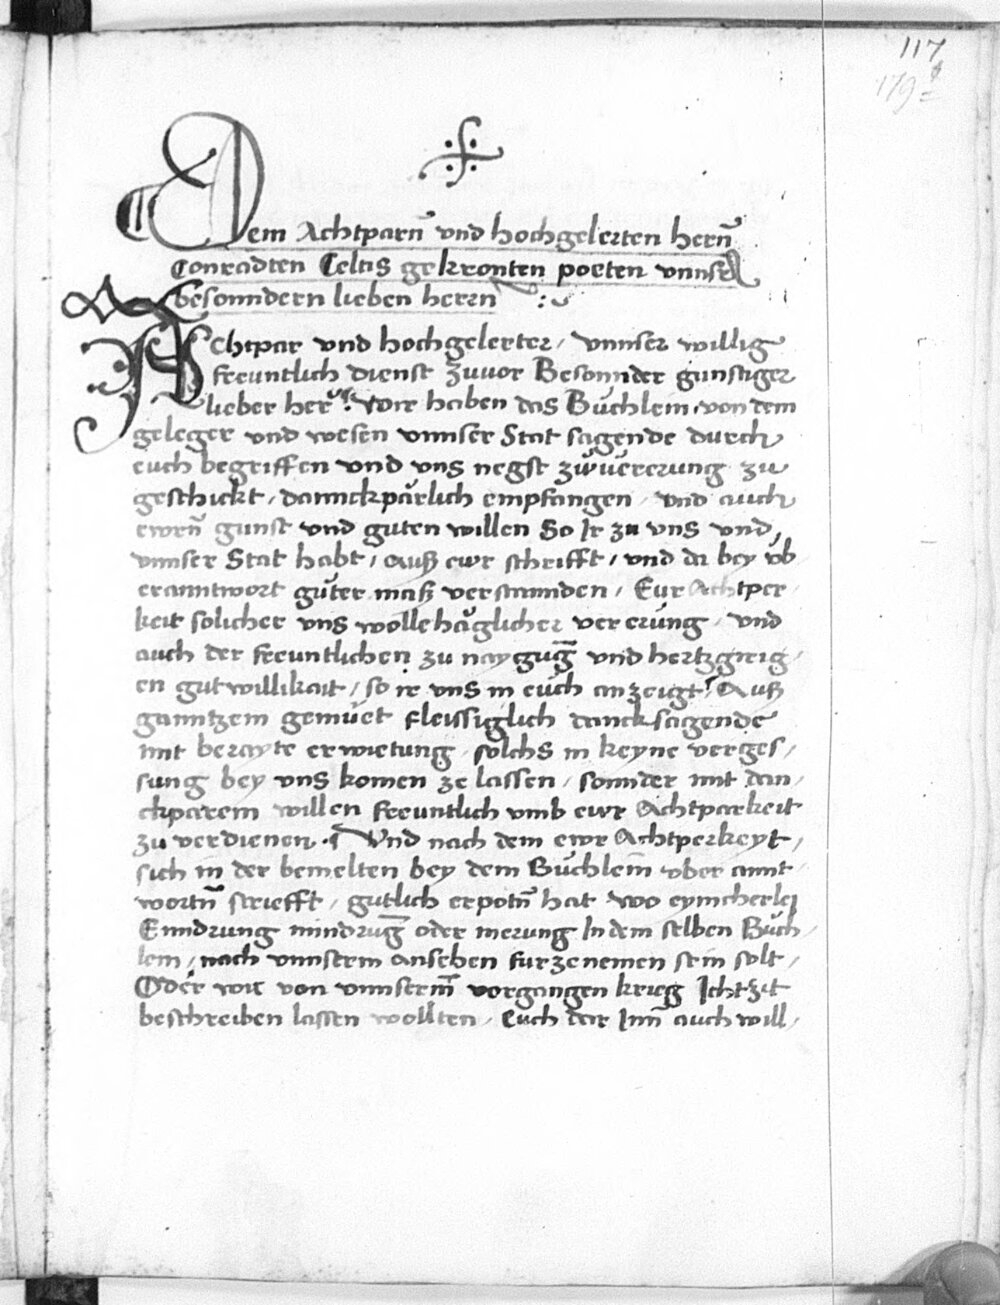 117
179
Dem Achtparn̄ vnd hochgelerten hern̄
Conradten Celtis gekronten poeten vnnserm
besonndern lieben herrn
Achtpar vnd hochgelerter / vnnser willig
freuntlich dienst zuuor Besonnder gunstiger
lieber her wir haben das Bůchlein von dem
geleger vnd wesen vnnser Stat sagende durch
euch begriffen vnd vns negst zw vererung zu
geschickt / dannckpärlich empfangen / vnd auch
ewrn̄ gunst vnd guten willen So Ir zu vns vnd
vnnser Stat habt / auß ewr schrifft / vnd da bey vb
eranntwort gůter maß verstannden / Eur Achtper
keit solicher vns wollehäglicher vererung / vnd
auch der freuntlichen zu naygūg vnd hertzgirig
en gutwillikait / so ir vns in eůch anzeigt / Auß
ganntzem gemůet fleissiglich dancksagende
mit berayte erwietung solchs in keyne verges /
sung bey vns komen ze lassen / sonnder mit dan /
ckparem willen freuntlich vmb ewr Achtparkeit
zu verdienen. Vnd nach dem ewr Achtperkeyt /
sich in der bemelten bey dem Bůchlein vber annt
wortn̄ schrifft / gutlich erpotn̄ hat wo eynicherlej
Enndrung mindrūg oder merung In dem selben Bůch /
lein / nach vnnserm ansehen furzenemen sein solt /
Oder wir von vnnserm̄ vorgangen krieg Ichtzit
beschreiben lassen wollten / Euch dar Inn̄ auch will /